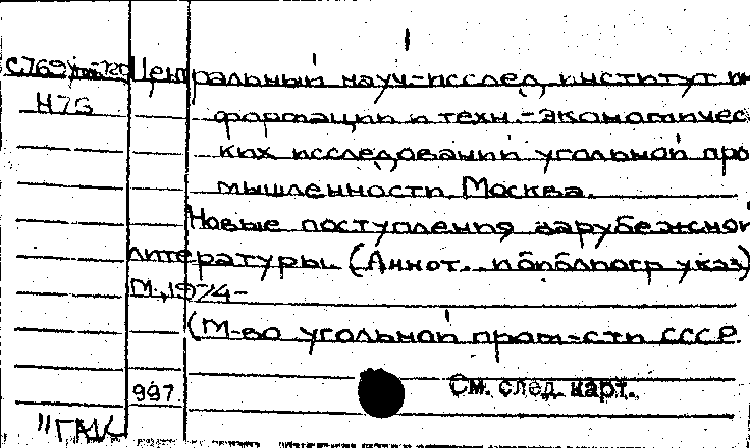 С769
Центральный науч-исслед. институт ин
Н73
формации и техн.-экономичес
ких исследований угольной про
мышленности. Москва.
Новые поступления зарубежной
литературы. (Аннот. библиогр. указ)
М., 1974-
(М-во угольной пром-сти СССР.
997
См. след. карт.